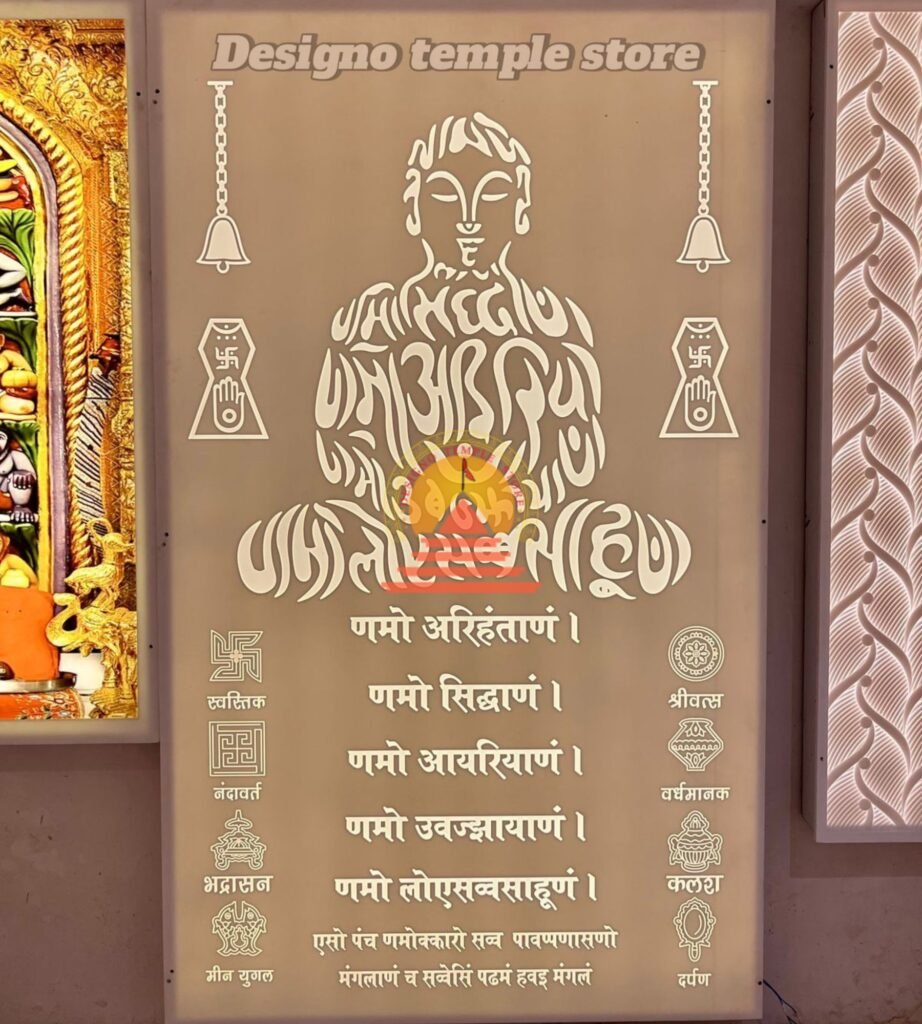 Designo temple store
णमो सिद्धाणं
णमो आयरिया
णमो लोए सव्व साहूणं
णमो अरिहंताणं ।
णमो सिद्धाणं ।
णमो आयरियाणं ।
णमो उवज्झायाणं ।
णमो लोएसव्वसाहूणं ।
एसो पंच णमोक्कारो सव्व पावप्पणासणो
मंगलाणं च सव्वेसिं पढमं हवइ मंगलं
स्वस्तिक
नंदावर्त
भद्रासन
मीन युगल
श्रीवत्स
वर्धमानक
कलश
दर्पण